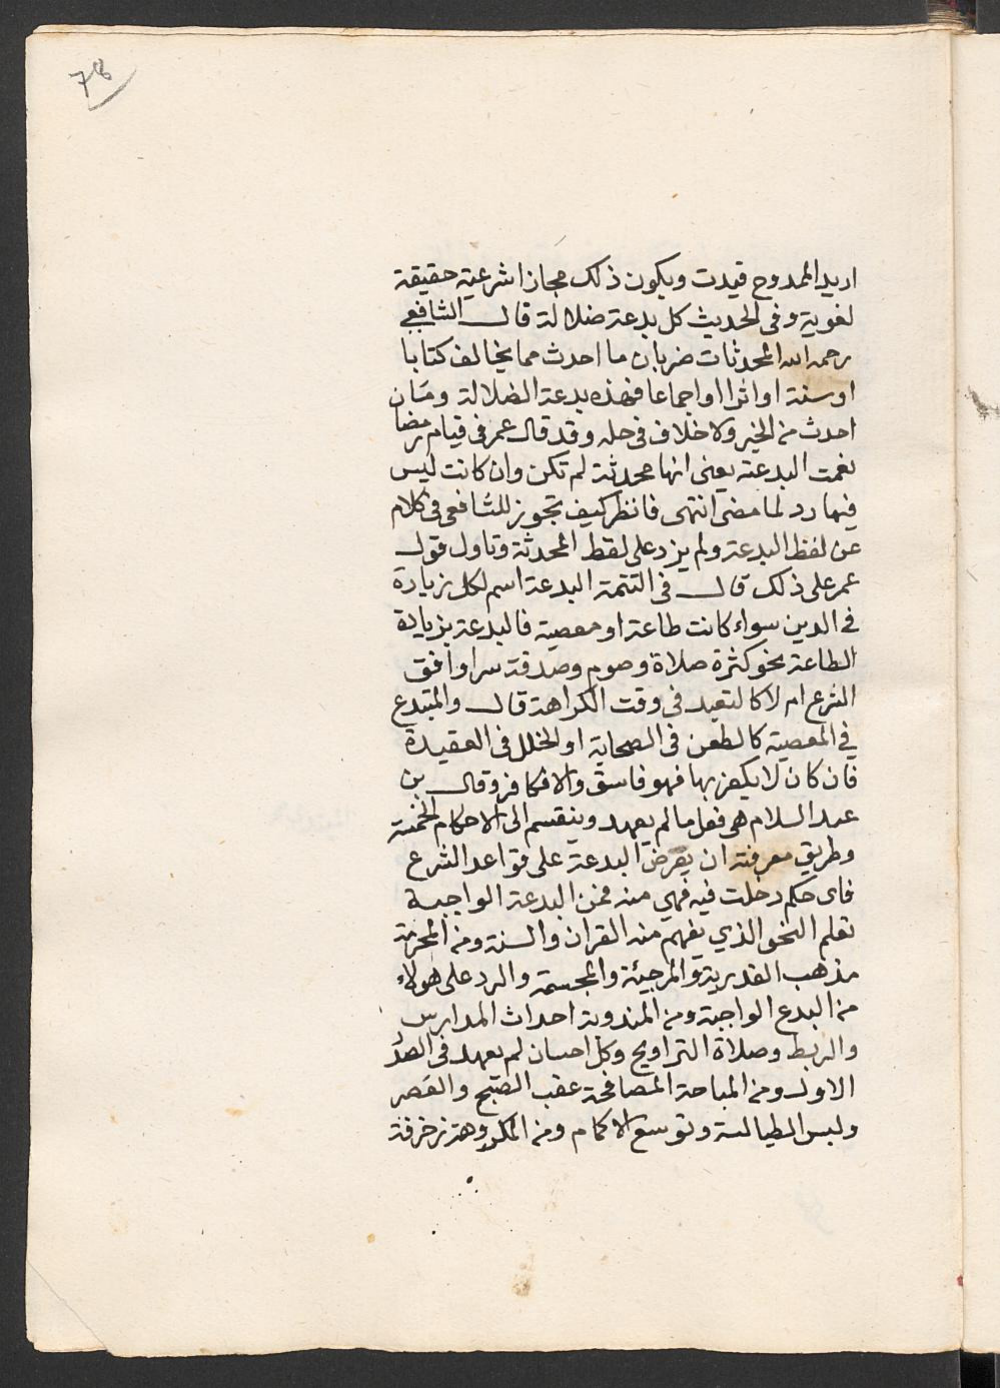 78
اريد الممدوح قيدت ويكون ذلك مجازا شرعية حقيقة
لغوية وفي الحديث كل بدعة ضلالة قال الشافعي
رحمه الله المحدثات ضربان ما احدث مما يخالف كتابا
او سنة او اثرا او اجماعا فهذه بدعة الضلالة وما ن
احدث من الخير ولا خلاف في حله وقد قال عمر في قيام رمضا
نعمت البدعة يعني انها محدثة لم تكن وان كانت ليس
فيها رد لما مضى انتهى فانظر كيف تجوز للشافعي في كلام
عن لفظ البدعة ولم يزد على لفظ المحدثة وتاول قول
عمر على ذلك قال في التتمة البدعة اسم لكل زيادة
في الدين سواء كانت طاعة او معصية فالبدعة بزيادة
الطاعة نحو كثرة صلاة وصوم وصدقة سرا وافق
الشرع ام لا كالتعبد في وقت الكراهة قال والمبتدع
في المعصية كالطعن في الصحابة او الخلل في العقيدة
فان كان لا يكفر بها فهو فاسق والا فكافر وقال بن
عبد السلام هي فعل ما لم يعهد وينقسم الى الاحكام الخمسة
وطريق معرفته ان يعرض البدعة على قواعد الشرع
فاى حكم دخلت فيه فهي منه فمن البدعة الواجبة
تعلم النحو الذي يفهم منه القران والسنة ومن المحرمة
مذهب القدرية والمرجئة والمجسمة والرد على هولاء
من البدع الواجبة ومن المندوبة احداث المدارس
والربط وصلاة التراويح وكل احسان لم يعهد في الصدر
الاول ومن المباحة المصافحة عقب الصبح والعصر
ولبس الطيالسة وتوسع الاكمام ومن المكروهة زخرفة